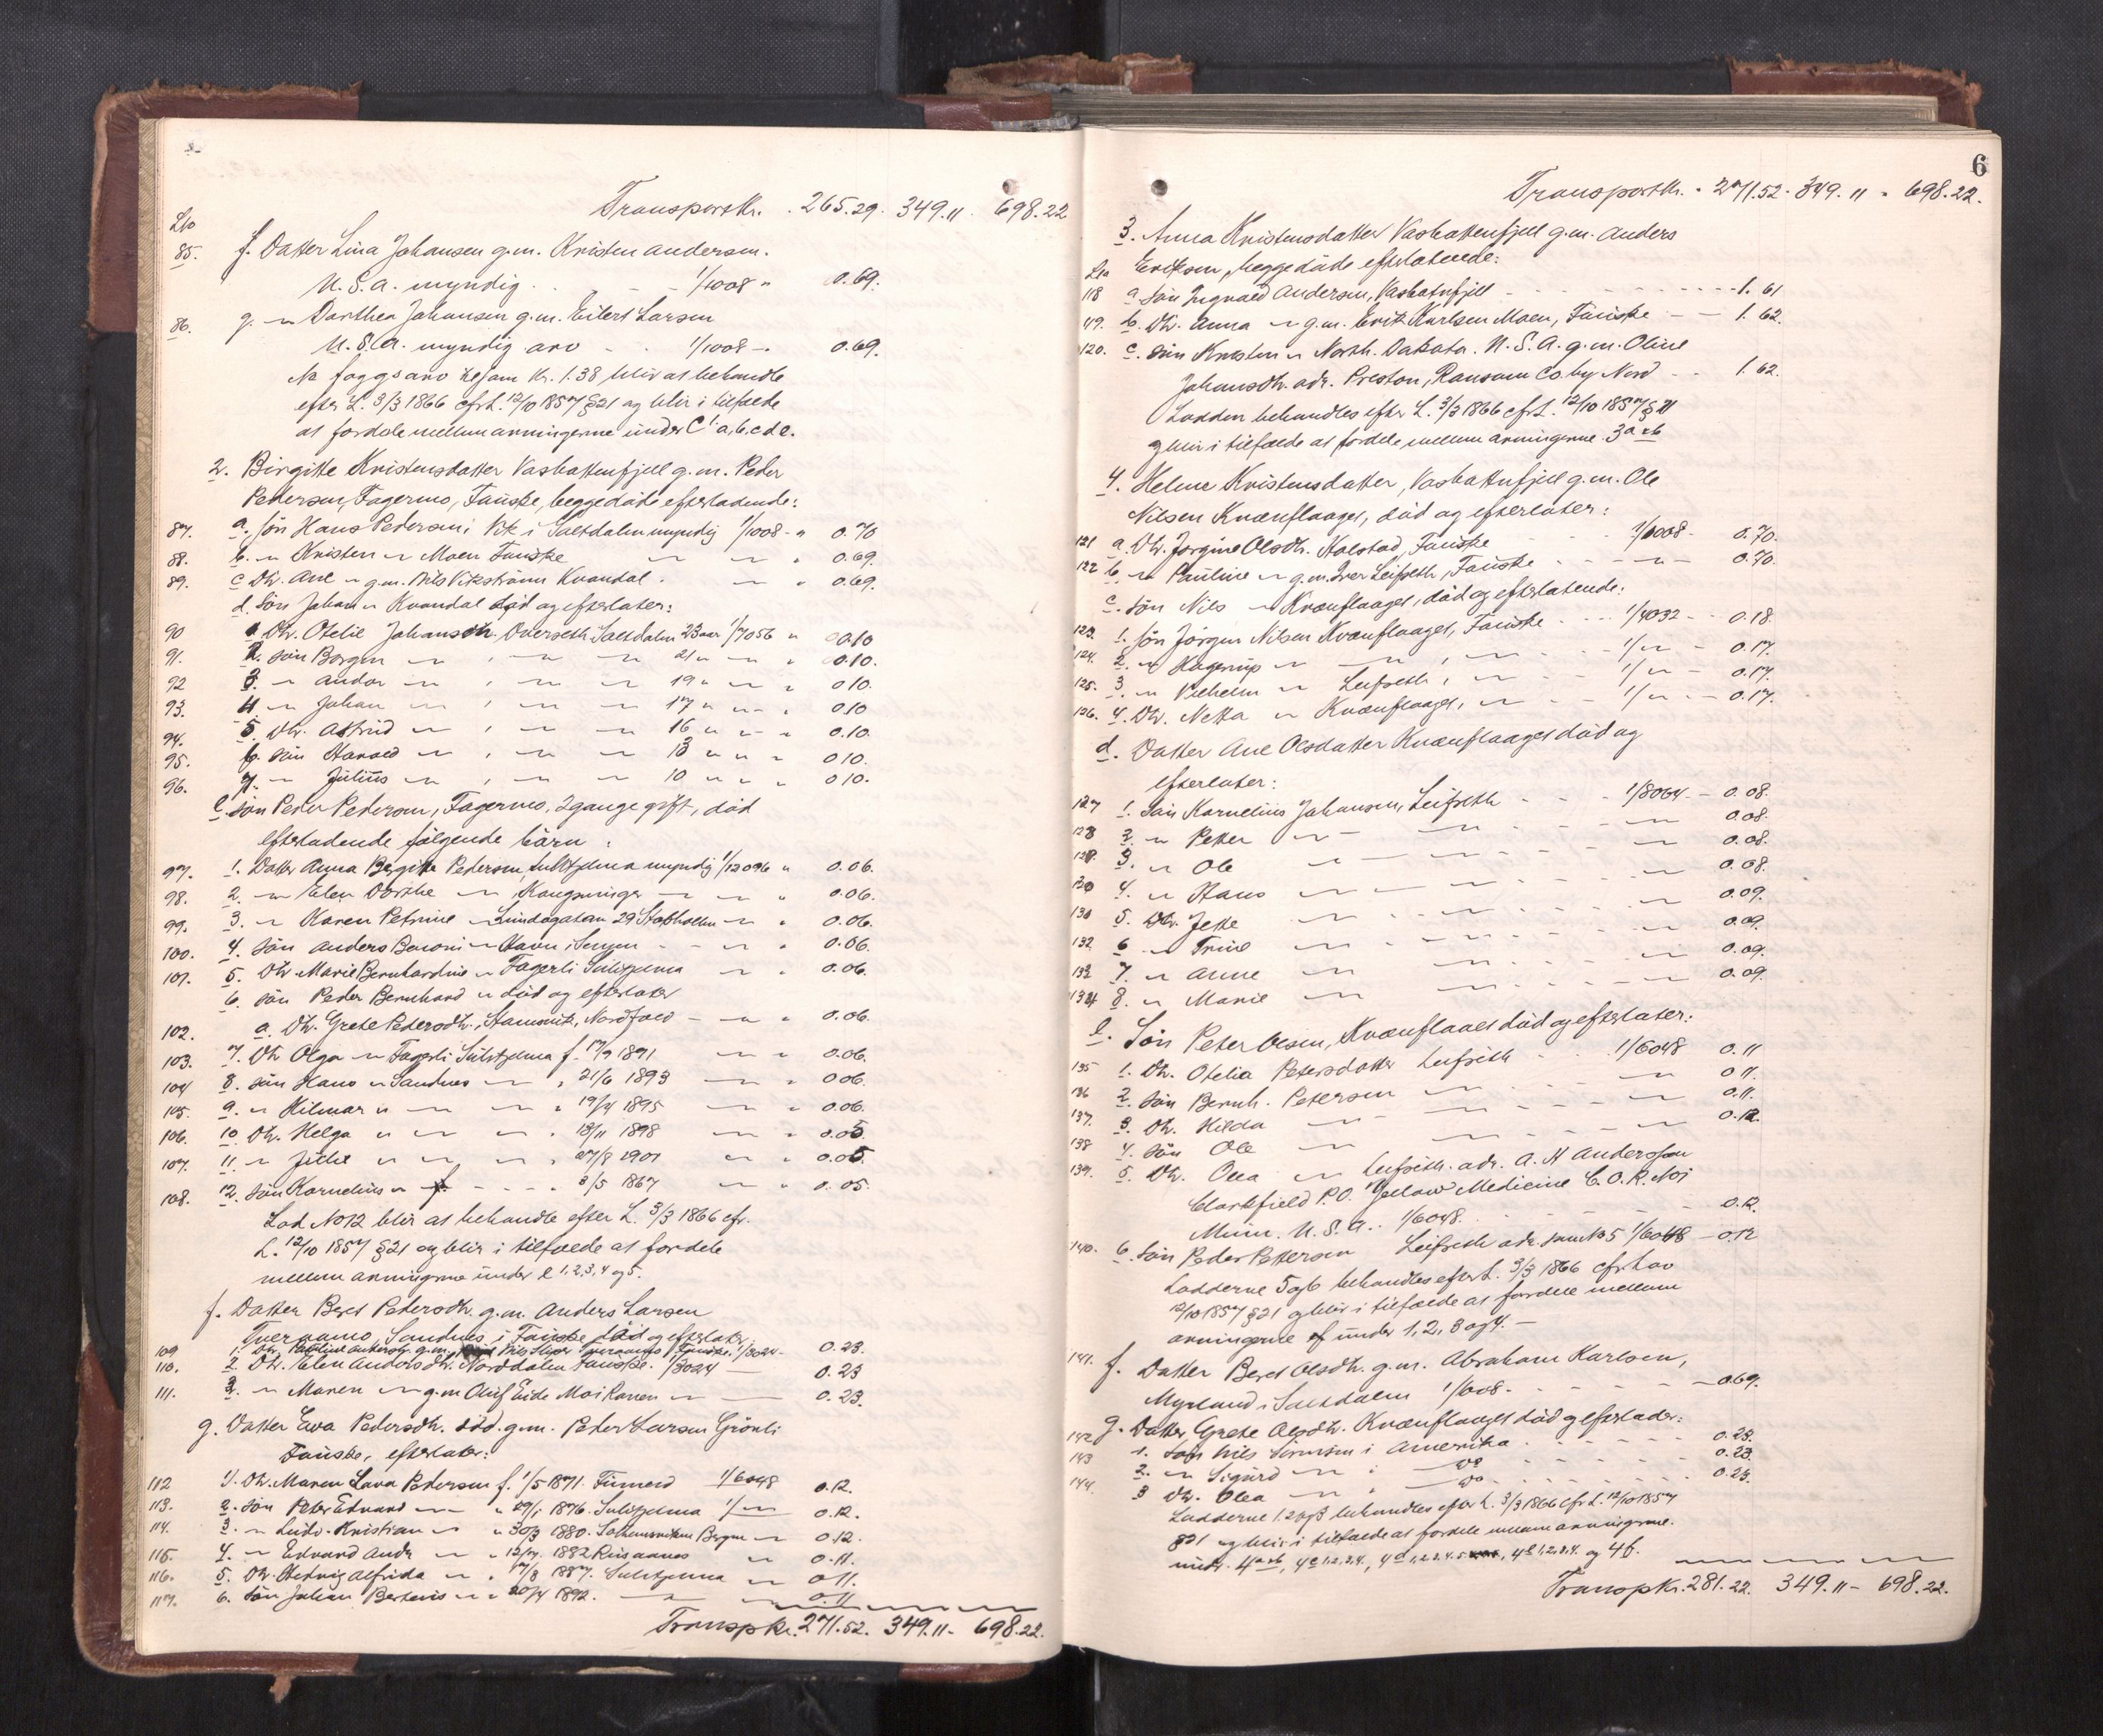 Transportkr. 265.29. 349.11. 698.22
Lno
85. f. Datter Lina Johansen g.m. Kristen Andersen.
U.S.A. myndig . . - - 1/1008 " 0.69.
86. g. " Dorthea Johansen g.m. Eilert Larsen
U.S.A. myndig arv - . . 1/1008 -. 0.69.
No f og g's arv tilsam kr. 1.38, blir at behandle
efter L. 3/3 1866 cfr L. 12/10 1857 §21 og blir i tilfælde
at fordele mellem arvingerne under C1 a, b, c d e.
2. Birgitte Kristensdatter Vasbottenfjell g.m. Peder
Pedersen, Fagermo, Fauske, begge døde efterladende:
87. a. Søn Hans Pedersen i Vik i Saltdalen myndig 1/1008 - " 0.70
88. b. " Kristen " Moen Fauske " " " 0.69.
89. c Dtr. Ane " g.m. Nils Vikström Kvandal. " " 0.69.
d. Søn Johan " Kvandal død og efterlater:
90 1 Dtr. Otelie Johansdtr. Overseth Saltdalen 23 aar 1/7056 " 0.10
91. 2. Søn Borgen " , " " 21 " " " 0.10.
92 3. " Andor " , " " 19 " " " 0 10.
93. 4 " Johan " , " " 17 " " " 0.10
94. 5. Dtr. Astrid " , " " 16 " " " 0.10.
95. 6. Søn Harald " , " " 13 " " " 0 10.
96. 7. " Julius " , " " 10 " " " 0 10.
e. Søn Peder Pedersen, Fagermo, 2 gange gift, død
efterladende følgende børn:
97. 1. Datter Anna Birgitte Pedersen, Sulitjelma myndig 1/12096 " 0.06.
98. 2. " Elen Dorthe " Kongsvinger " " " 0.06.
99. 3. " Karen Petrine " Lindogatan 29 Stokholm " " 0.06.
100. 4. Søn Anders Benoni " Havn i Senjen - " " 0.06.
101. 5. Dtr Marie Bernhardine " Fagerli Sulitjelma " " 0.06.
6. Søn Peder Bernhard " død og efterlater
102. a. Dtr. Grete Pedersdtr., Stamsvik, Nordfold - " " 0.06.
103. 7. Dtr Olga " Fagerli Sulitjelma f. 17/9 1891 " " 0.06.
104 8. Søn Hans " Sandnes " , 21/6 1893 " " 0 06.
105. 9. " Hilmar " " " " 19/4 1895 " " 0.06.
106. 10. Dtr. Helga " " " , 13/11 1898 " " 0.05
107. 11. " Julie " " " , 27/8 1901 " " 0.05
108. 12. Søn Kornelius " - - - " 3/5 1867 " " 0. 05.
Lod No 12 blir at behandle efter L. 3/3 1866 cfr.
L. 12/10 1857 §21 og blir i tilfælde at fordele
mellem arvingerne under e 1, 2, 3, 4 og 5.
f. Datter Beret Pedersdtr. g.m. Anders Larsen
Tveraamo, Sandnes i Fauske død og efterlater
109 1. Dtr. Pauline Andersdtr g.m. Nils Tveraamo Fauske. 1/3024 - 0.23.
110. 2. Dtr. Elen Andersdtr. Norddalen Fauske. 1/3024 — 0.23
111. 3. " Maren " g.m Oluf Eide Moi Ranen " — 0.23.
g. Datter Eva Pedersdtr. død. g.m. Peter Larsen Grönli
Fauske, efterlater:
112 1. Dtr. Maren Lava Pedersen f. 1/5 1871. Finneid 1/6048 0.12.
113. 2. Søn Peter Edvard " " 29/1 1876. Sulitjelma 1/" 0.12.
114. 3. " Ludv. Kristian " " 30/3 1880. Bergen " 0.12.
115. 4. " Edvard Andr " " 12/7. 1882 " 0.11.
116. 5. Dtr. Hedvig Alfida " " 17/8 1887. Sulitjelma " 0 11.
117. 6. Søn Johan " " 20/4 1892. " " 0.11
Transpkr. 271.52. 349.11 - 698.22.
6
Transportkr. - 271.52 - 349. 11 - 698.22.
3. Anna Kristensdatter Vasbottenfjell g.m. Anders
Lno Eriksen, begge døde efterlatende:
118 a Søn Ingvald Andersen, Vasbotnfjell - - - - - 1. 61
119. b. Dtr. Anna " g.m. Erik Karlsen Moen, Fauske — — 1. 62.
120. c. Søn Kristen " North. Dakota. U.S.A. g.m. Oline
Johansdtr. adr. Preston, Ransom Co. by Nord - - 1. 62.
Lodden behandles efter L. 3/3 1866 cfr L. 12/10 1857 § 21
og blir i tilfælde at fordele mellem arvingerne 3 a & b
4. Helene Kristensdatter, Vasbottnfjell g.m. Ole
Nilsen Kvænflaaget, død og efterlater:
121 a. Dtr. Jørgine Olsdtr. Holstad, Fauske 1/1008 - 0.70.
122 b. " Pauline " g.m. Iver Leifseth, Fauske - - " - 0.70.
c. Søn Nils " Kvænflaaget, død og efterlatende:
123. 1. Søn Jörgen Nilsen Kvænflaaget, Fauske - - - 1/4032 - - 0.18.
124. 2. " Hagerup " — , " - - - 1/" - 0.17.
125. 3. " Vilhelm " Leifseth, " - - - 1/" - 0.17.
126. 4. Dtr. Netta " Kvænflaaget, " - - 1/" - - 0.17.
d. Datter Ane Olsdatter Kvænflaaget død og
efterlater:
127 1. Søn Kornelius Johansen, Leifseth - - - 1/8064 - 0.08.
128 2. " Petter " - " - - - " 0.08.
129. 3. " Ole " " - - - " 0.08.
130 4. " Hans " " - - - " 0.08.
131 5. Dtr. Jette " " - - - " 0.09.
132 6 " Trine " " - - - " 0.09.
133 7. " Anne " " - - - " 0.09.
134 8. " Marie " " - - - " 0.09.
e. Søn Peter Olsen, Kvænflaaet død og efterlater:
135 1. Dtr. Otelia Petersdatter Leifseth - - 1/6048 0. 11
136 2. Søn Bernh. Petersen " - - " 0 11.
137. 3. Dtr. Hilda " - " - - - " 0.11.
138 4. Søn Ole " " - - - " 0.12.
139. 5. Dtr. Olea " Leifseth. adr. A. H Andersson
Clarkfield P.O. Yellow Medicine C. O. R. No 1
Minn. U. S. A.. 1/6048. - - - - 0.12.
140. 6. Søn Peder Pettersen Leifseth adr. som No 5 1/6048 - 0.12
Lodderne 5 og 6 behandles efter L. 3/3 1866 cfr Lov
12/10 1857 §21 og blir i tilfælde at fordele mellem
arvingerne under 1, 2, 3 og 4. —
141. f. Datter Beret Olsdtr. g.m. Abraham Karlsen,
Myrland i Saltdalen 1/1008 - - - - — 0.69.
g. Datter Grete Olsdtr. Kvænflaaget død og efterlader:
142 1. Søn Nils Simonsen i Amerika - - - - 0.23.
143 2. " Sigurd " i do - - - - 0.23
144. 3 Dtr. Olea " " do - - - - 0.23.
Lodderne 1. 2 og 3 behandles efter L. 3/3 1866 cfr L. 12/10 1857
§21 og blir i tilfælde at fordele mellem arvingerne
under. 4 a & b, 4 c 1, 2, 3, 4., 4 d 1, 2, 3. 4. 5, 4 e 1, 2, 3, 4. og 4 f.
Transpkr. 281.22. 349.11 - 698.22.